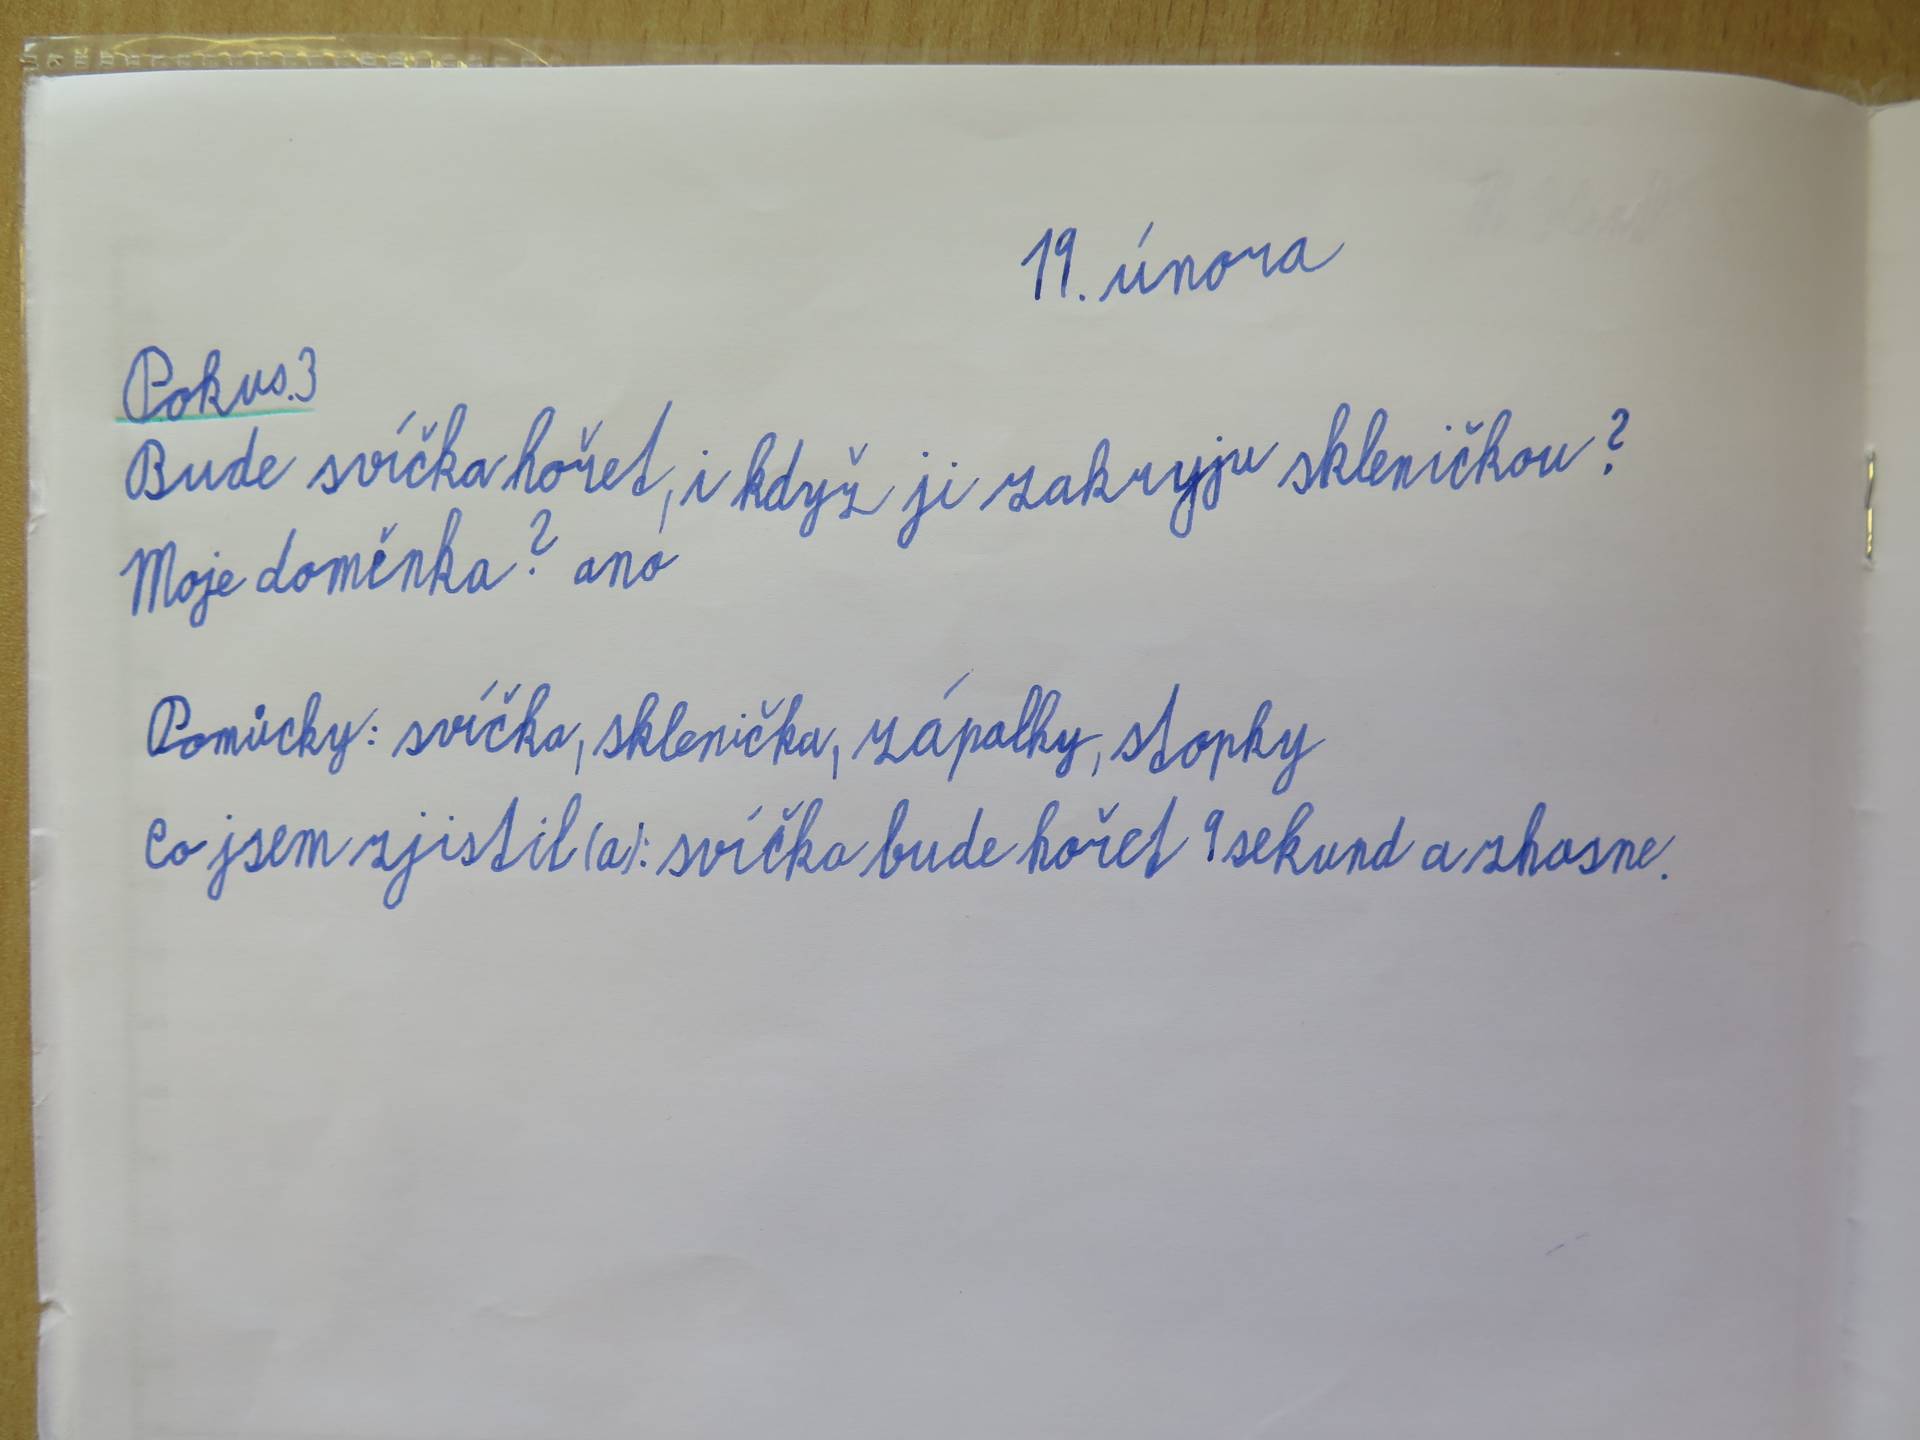 19. února
Pokus.3
Bude svíčka hořet, i když ji zakryju skleničkou?
Moje doměnka? ano
Pomůcky: svíčka, sklenička, zápalky, stopky
Co jsem zjistil(a): svíčka bude hořet 9 sekund a zhasne.